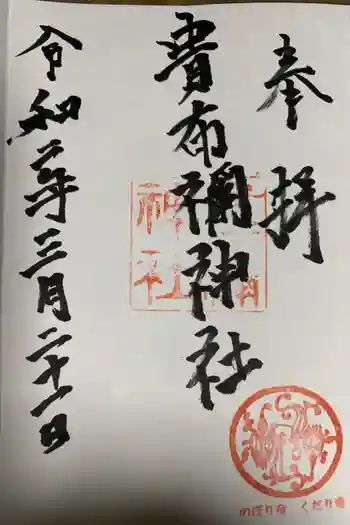 奉拝
貴布禰神社
令和二年三月二十一日
神社
のぼり竜 くだり竜